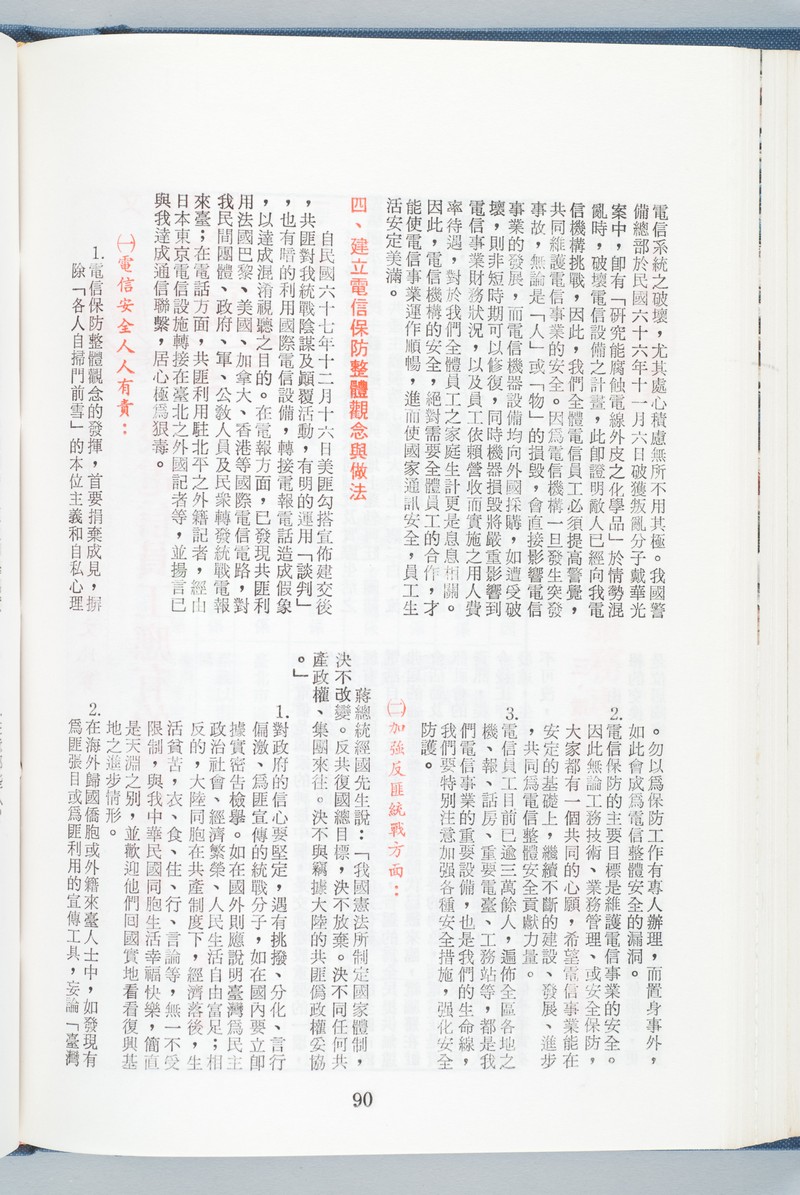 電信系統之破壞，尤其處心積慮無所不用其極。我國警
備總部於民國六十六年十一月六日破獲叛亂分子戴華光
案中，卽有「硏究能腐蝕電線外皮之化學品」於情勢混
亂時，破壞電信設備之計畫，此卽證明敵人已經向我電
信機構挑戰，因此，我們全體電信員工必須提高警覺，
共同維護電信事業的安全。因爲電信機構一旦發生突發
事故，無論是「人」或「物」的損毀，會直接影響電信
事業的發展，而電信機器設備均向外國採購，如遭受破
壞，則非短時期可以修復，同時機器損毀將嚴重影響到
電信事業財務狀況，以及員工依賴營收而實施之用人費
率待遇，對於我們全體員工之家庭生計更是息息相關。
因此，電信機構的安全，絕對需要全體員工的合作，才
能使電信事業運作順暢，進而使國家通訊安全，員工生
活安定美滿。
四、建立電信保防整體觀念與做法
自民國六十七年十二月十六日美匪勾搭宣佈建交後
，共匪對我統戰陰謀及顚覆活動，有明的運用「談判」
，也有暗的利用國際電信設備，轉接電報電話造成假象
，以達成混淆視聽之目的。在電報方面，已發現共匪利
用法國巴黎、美國、加拿大、香港等國際電信電路，對
我民間團體、政府、軍、公敎人員及民衆轉發統戰電報
來臺；在電話方面，共匪利用駐北平之外籍記者，經由
日本東京電信設施轉接在臺北之外國記者等，並揚言已
與我達成通信聯繫，居心極爲狠毒。
㈠電信安全人人有責：
1.電信保防整體觀念的發揮，首要捐棄成見，摒
除「各人自掃門前雪」的本位主義和自私心理
。勿以爲保防工作有專人辦理，而置身事外，
如此會成爲電信整體安全的漏洞。
2.電信保防的主要目標是維護電信事業的安全。
因此無論工務技術、業務管理、或安全保防，
大家都有一個共同的心願，希望電信事業能在
安定的基礎上，繼續不斷的建設、發展、進步
，共同爲電信整體安全貢獻力量。
3.電信員工目前已逾三萬餘人，遍佈全區各地之
機、報、話房、重要電臺、工務站等，都是我
們電信事業的重要設備，也是我們的生命線，
我們要特別注意加强各種安全措施，强化安全
防護。
㈡加強反匪統戰方面：
蔣總統經國先生說：「我國憲法所制定國家體制，
決不改變。反共復國總目標，決不放棄。決不同任何共
產政權、集團來往。決不與竊據大陸的共匪僞政權妥協
。」
1.對政府的信心要堅定，遇有挑撥、分化、言行
偏激、爲匪宣傳的統戰分子，如在國內要立卽
據實密告檢擧。如在國外則應說明臺灣爲民主
政治社會、經濟繁榮、人民生活自由富足；相
反的，大陸同胞在共產制度下，經濟落後，生
活貧苦，衣、食、住、行、言論等，無一不受
限制，與我中華民國同胞生活幸福快樂，簡直
是天淵之別，並歡迎他們回國實地看看復興基
地之進步情形。
2.在海外歸國僑胞或外籍來臺人士中，如發現有
爲匪張目或爲匪利用的宣傳工具，妄論「臺灣
90